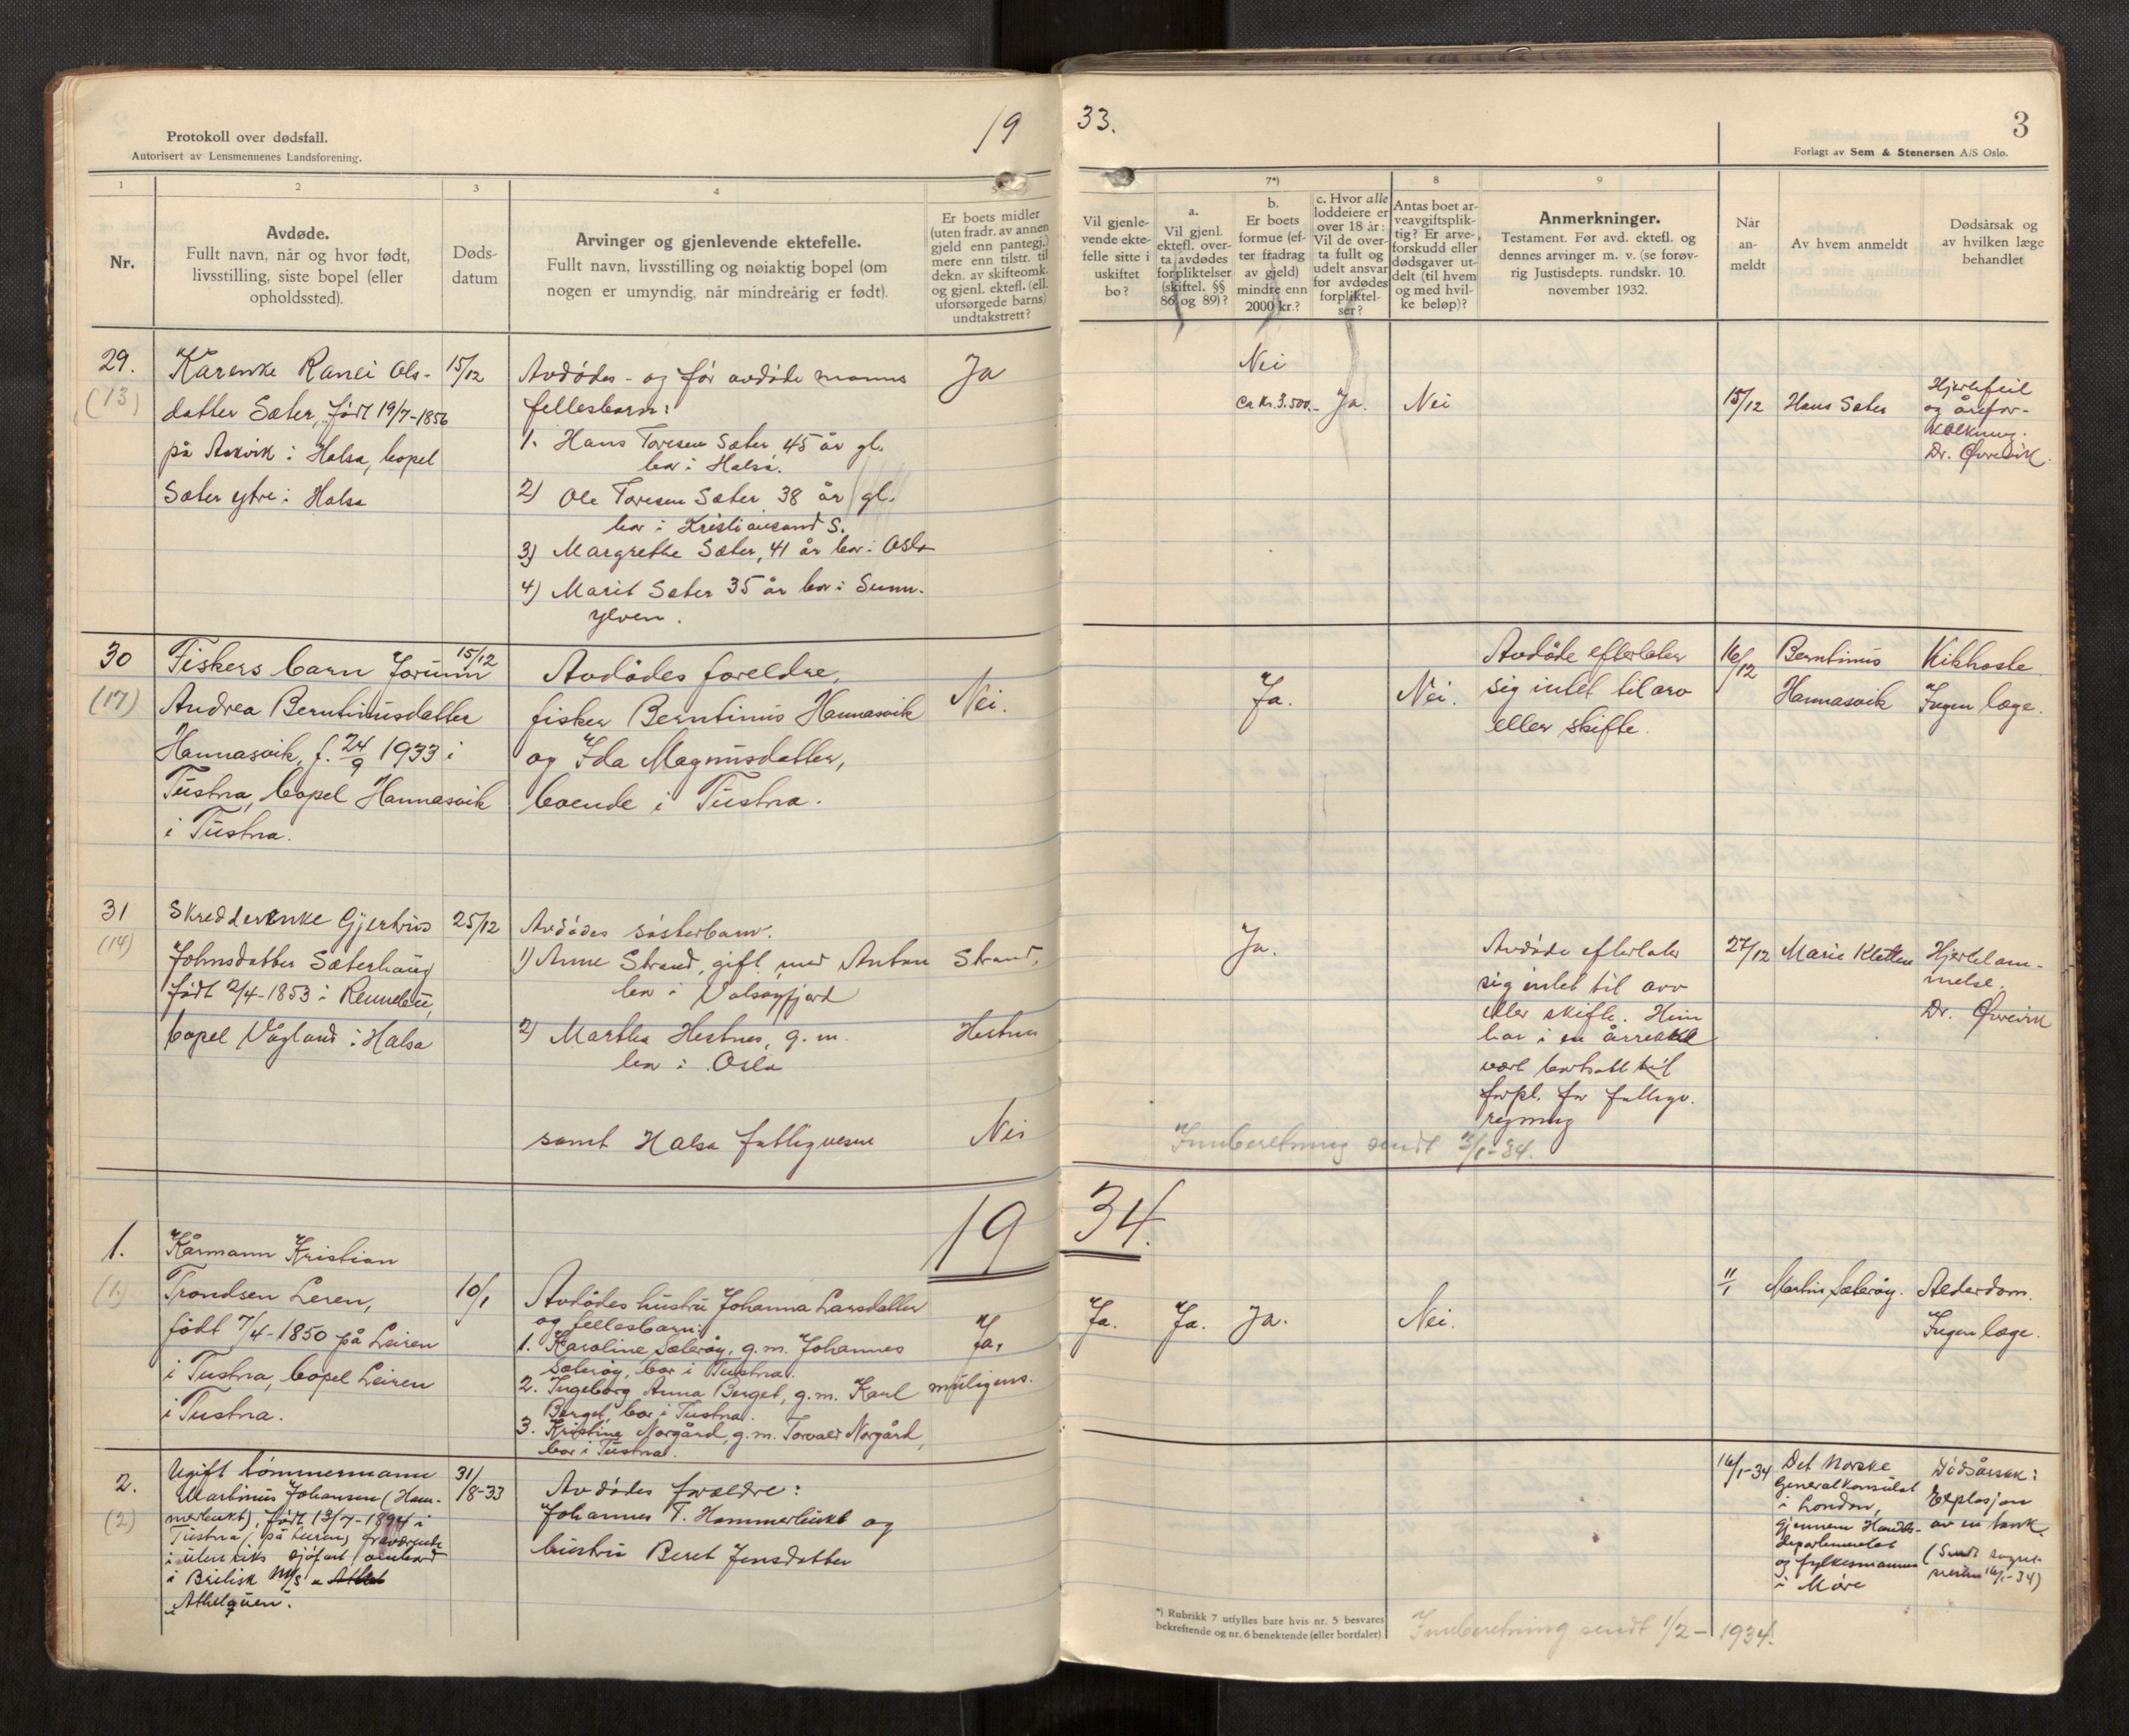 Protokoll over dødsfall.
Autorisert av Lensmennenes Landsforening.
19
33.
3
Forlagt av Sem & Stenersen A/S Oslo.
1
2
3
4
5
7*)
8
9
Nr.
Avdøde.
Fullt navn, når og hvor født,
livsstilling, siste bopel (eller
opholdssted).
Døds-
datum
Arvinger og gjenlevende ektefelle.
Fullt navn, livsstilling og nøiaktig bopel (om
nogen er umyndig, når mindreårig er født).
Er boets midler
(uten fradr. av annen
gjeld enn pantegj.)
mere enn tilstr. til
dekn. av skifteomk.
og gjenl. ektef. (ell.
uforsørgede barns)
undtakstrett?
Vil gjenle-
vende ekte-
felle sitte i
uskiftet
bo?
a.
Vil gjenl.
ektefl. over-
ta avdødes
forpliktelser
(skiftel. §§
86 og 89)?
b.
Er boets
formue (ef-
ter fradrag
av gjeld)
mindre enn
2000 kr.?
c. Hvor alle
loddeiere er
over 18 år:
Vil de over-
ta fullt og
udelt ansvar
for avdødes
forpliktel-
ser?
Antas boet ar-
veavgiftsplik-
tig? Er arve-
forskudd eller
dødsgaver ut-
delt (til hvem
og med hvil-
ke beløp)?
Anmerkninger.
Testament. Før avd. ektefl. og
dennes arvinger m. v. (se forøv-
rig Justisdepts. rundskr. 10.
november 1932.
Når
an-
meldt
Av hvem anmeldt
Dødsårsak og
av hvilken læge
behandlet
29.
(13)
Kårenke Ranei Ols-
datter Sæter, født 19/7-1856
på Aakvik i Halsa, bopel
Sæter ytre i Halsa
15/12
Avdødes - og før avdøde manns
fellesbarn:
1. Hans Toresen Sæter 45 år gl.
bor i Halsa.
2) Ole Toresen Sæter 38 år gl.
bor i Kristiansand S.
3) Margrethe Sæter, 41 år bor i Oslo
4) Marit Sæter 35 år bor i Sunn-
ylven.
Ja
Nei
ca kr. 3.500.-
Ja.
Nei
15/12
Hans Sæter
Hjertefeil
og årefor-
kalkning.
Dr. Øvrevik.
30
(17)
Fiskers barn Jorunn
Andrea Berntinusdatter
Hannasvik, f. 24/9 1933 i
Tustna, bopel Hannasvik
i Tustna.
15/12
Avdødes foreldre,
fisker Berntinus Hannasvik
og Ida Magnusdatter,
boende i Tustna.
Nei.
Ja.
Nei.
Avdøde efterlater
sig intet til arv
eller skifte.
16/12
Berntinus
Hannasvik
Kikhoste
Ingen læge.
31
(14)
Skredderenke Gjertrud
Johnsdatter Sæterhaug
født 2/4-1853 i Rennebu,
bopel Vågland i Halsa
25/12
Avdødes søsterbarn:
1) Anne Strand, gift med Anton Strand,
bor i Valsøyfjord
2) Martha Hestnes, g. m. Hestnes
bor i Oslo
samt Halsa fattigvesen
Nei
Ja.
Avdøde efterlater
sig intet til arv
eller skifte. Hun
har i en årrekke
vært bortsatt til
forpl. for fattigv.
regning
27/12
Marie Kletten
Hjertelam-
melse.
Dr. Øvrevik
Innberetning sendt 3/1-34.
19
34.
1.
(1.)
Kårmann Kristian
Trondsen Leren,
født 7/4-1850 på Leiren
i Tustna, bopel Leiren
i Tustna.
10/1
Avdødes hustru Johanna Larsdatter
og fellesbarn:
1. Karoline Sæterøy, g. m. Johannes
Sæterøy, bor i Tustna.
2. Ingeborg Anna Berget, g. m. Karl
Berget, bor i Tustna.
3. Kristine Norgård, g. m. Torvald Norgård,
bor i Tustna.
Ja,
muligens.
Ja.
Ja.
Ja.
Nei.
11/1
Martin Sæterøy.
Alderdom.
Ingen læge.
2.
(2)
Ugift tømmermann
Martinus Johansen (Ham-
merbukt), født 13/7-1894 i
Tustna (på Leren) fraværende
i utenriks sjøfart, ombord
i Britisk M/S
"Athelqueen".
31/8-33
Avdødes foreldre:
Johannes T. Hammerbukt og
hustru Beret Jensdatter
16/1-34
Det Norske
Generalkonsulat
i London,
gjennem Handels-
departementet
og fylkesmannen
i Møre
Dødsårsak:
Explosjon
av en tank
(Sendt sogne-
presten 16/1-34)
*) Rubrikk 7 utfylles bare hvis nr. 5 besvares
bekreftende og nr. 6 benektende (eller bortfaler).
Innberetning sendt 1/2-1934.